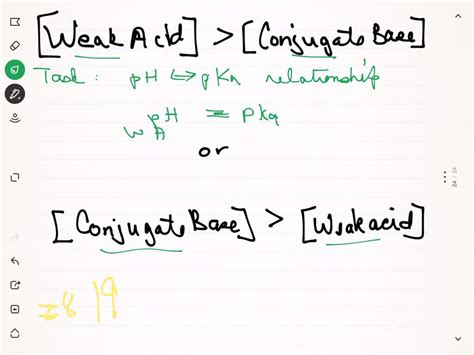 [Weak Acid] > [Conjugate Base]
Task: pH ⇔ pKa relationship
pH = pKa
W A
or
[Conjugate Base] > [Weak acid]
24 / 24
=8 19